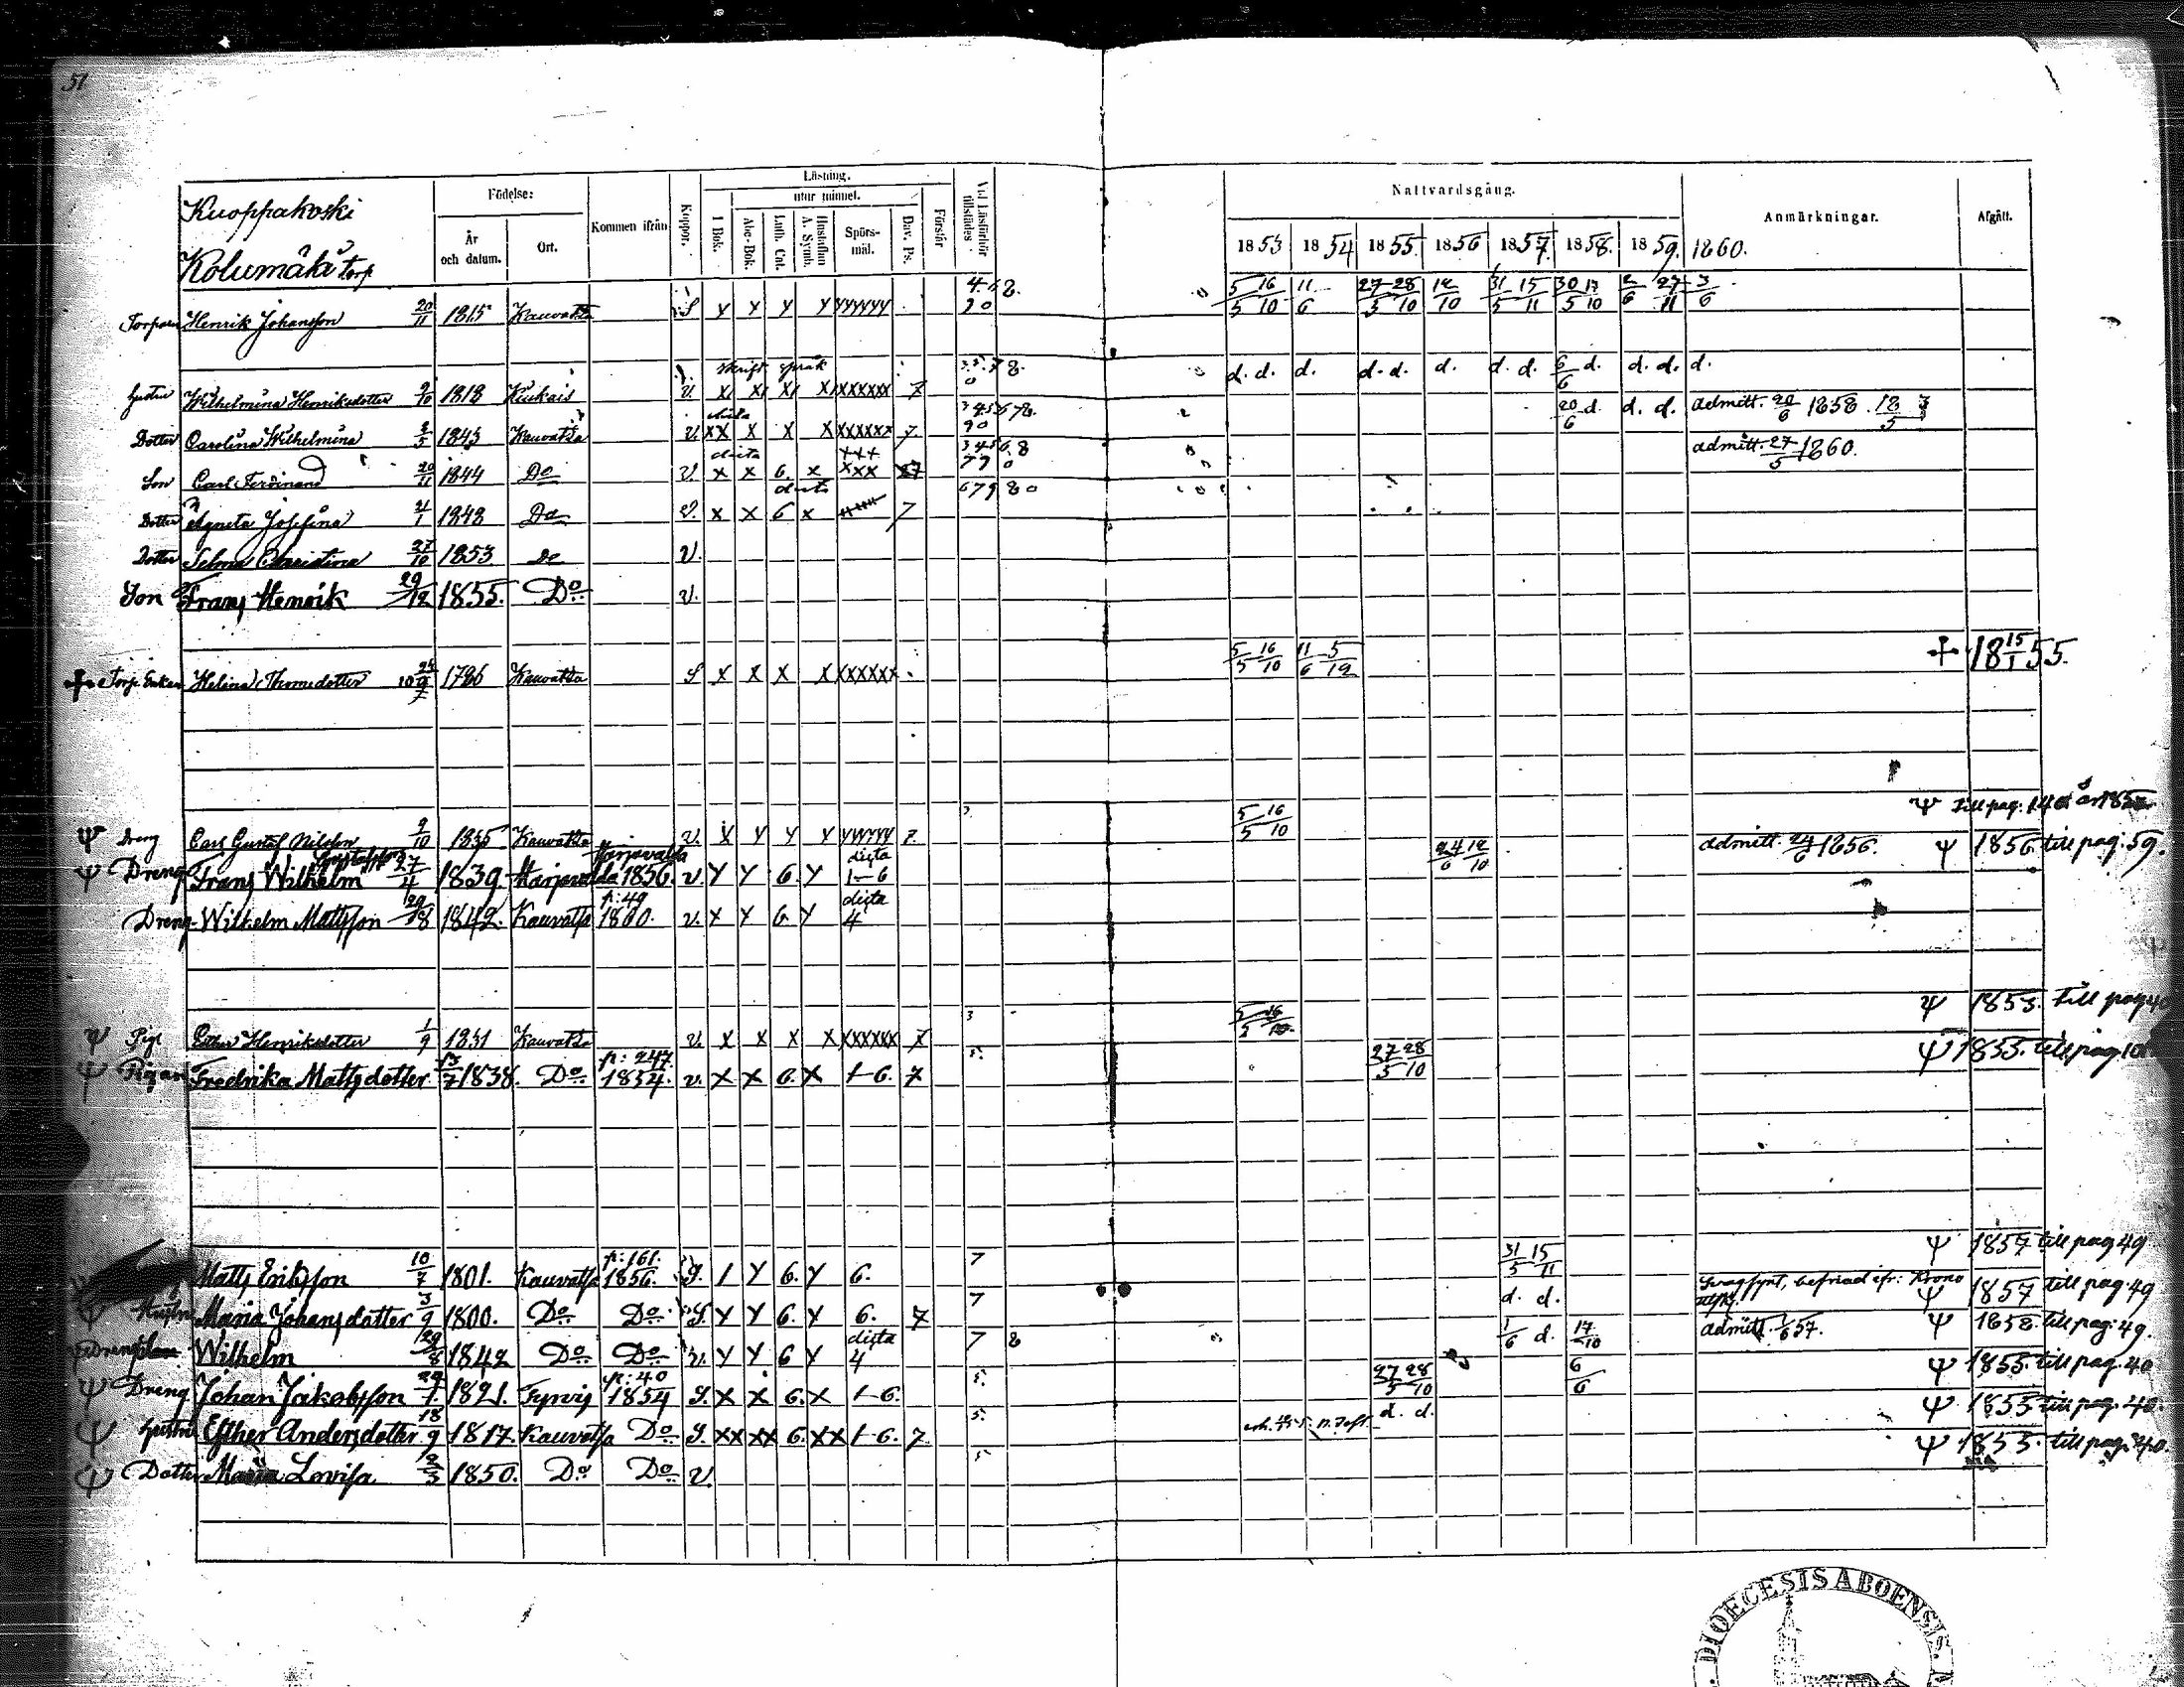 51
Kuoppakoski
Kolumäki torp
Födelse:
År och datum.
Ort.
Kommen ifrån
Koppor.
Läsning.
utur minnet.
I Bok.
Abc-Bok.
Luth. Cat.
Hustaflan A. Symb.
Spörsmål.
Dav. Ps.
Förstår
Vid Läsförhör tillstädes
Nattvardsgång.
1853 1854 1855. 1856 1857. 1858. 1859. 1860.
Anmärkningar.
Afgått.
Henrik Johansson 20/11 1815 Kauvatsa S y y y y yyyyyy 5/5 16/10 11/6 27/5 28/10 12/10 31/5 15/11 30/5 17/10 2/6 27/11 3/6
skrift språk
Hustru Wilhelmina Henriksdotter 9/10 1818 Kiukais v. x x x x xxxxxx 7 d. d. d. d. d. d. d. d. 6/6 d. d. d. d.
Dotter Carolina Wilhelmina 3/5 1843 Kauvatsa v. xx x x x xxxxxx 7. 20/6 d. d. d. admitt. 20/6 1858.
Son Carl Ferdinand 20/11 1844 Do v. x x 6. x xxx admitt. 27/5 1860.
Dotter Agneta Josefina 21/1 1848 Do v. x x 6 x 7 67980
Dotter Selma Christina 27/10 1853 Do v.
Son Frans Henrik 29/12 1855. Do v.
Helena Thomedotter 1786 Kauvatsa S x x x x xxxxxx 5/5 16/10 11/6 5/12 + 18 15/1 55.
Ψ Dreng Carl Gustaf Nilsson 9/10 1835 Kauvatsa v. x y y y yyyyyy 7. 3. 5/5 16/10 Ψ till pag:
Ψ Dreng Frans Wilhelm Gustafsson 27/4 1839. Harjavalda 1856. v. y y 6. y digta 1-6 24/6 12/10 admitt. 24/6 1856. Ψ 1856 till pag: 59.
Dreng Wilhelm Mattsson 29/8 1842. Kauvatsa p: 49 1860. v. x y 6. y digta 4
Ψ Pig. Henriksdotter 1/9 1831 Kauvatsa v. x x x x xxxxxx 7 3 5/5 16/10. Ψ 1853. till pag
Ψ Pigan Fredrika Mattsdotter 1838. Do p: 247. 1854. v. x x 6. x 1-6. 7 5. 27/5 28/10 Ψ 1855. till pag.
Matts Eriksson 10/7 1801. Kauvatsa p: 161. 1856. S. 1 y 6. y 6. 7 31/5 15/11 Ψ 1857 till pag 49
Ψ Hustru Maria Johansdotter 3/9 1800. Do Do S. y y 6. y 6. 7 7 d. d. Svagsynt, befriad ifr: Krono Ψ 1857 till pag: 49
Wilhelm 29/8 1842 Do Do v. y y 6 y digta 4 7 8 1/6 d. 17/10 admitt. 1/6 57. Ψ 1858. till pag: 49.
Ψ Dreng Johan Jakobsson 1821. Tyrvis p: 40 1854 S. x x 6. x 1-6. 5. 27/5 28/10 6/6 Ψ 1855. till pag. 40
Ψ Hustru Esther Andersdotter 18/9 1817. Kauvatsa Do S. xx xx 6. xx 1-6. 7. 5. d. d. Ψ 1855 till pag. 40.
Ψ Dotter Maria Lovisa 2/3 1850. Do Do v. 5 Ψ 1855. till pag. 40.
DIOECESIS ABOENSIS.